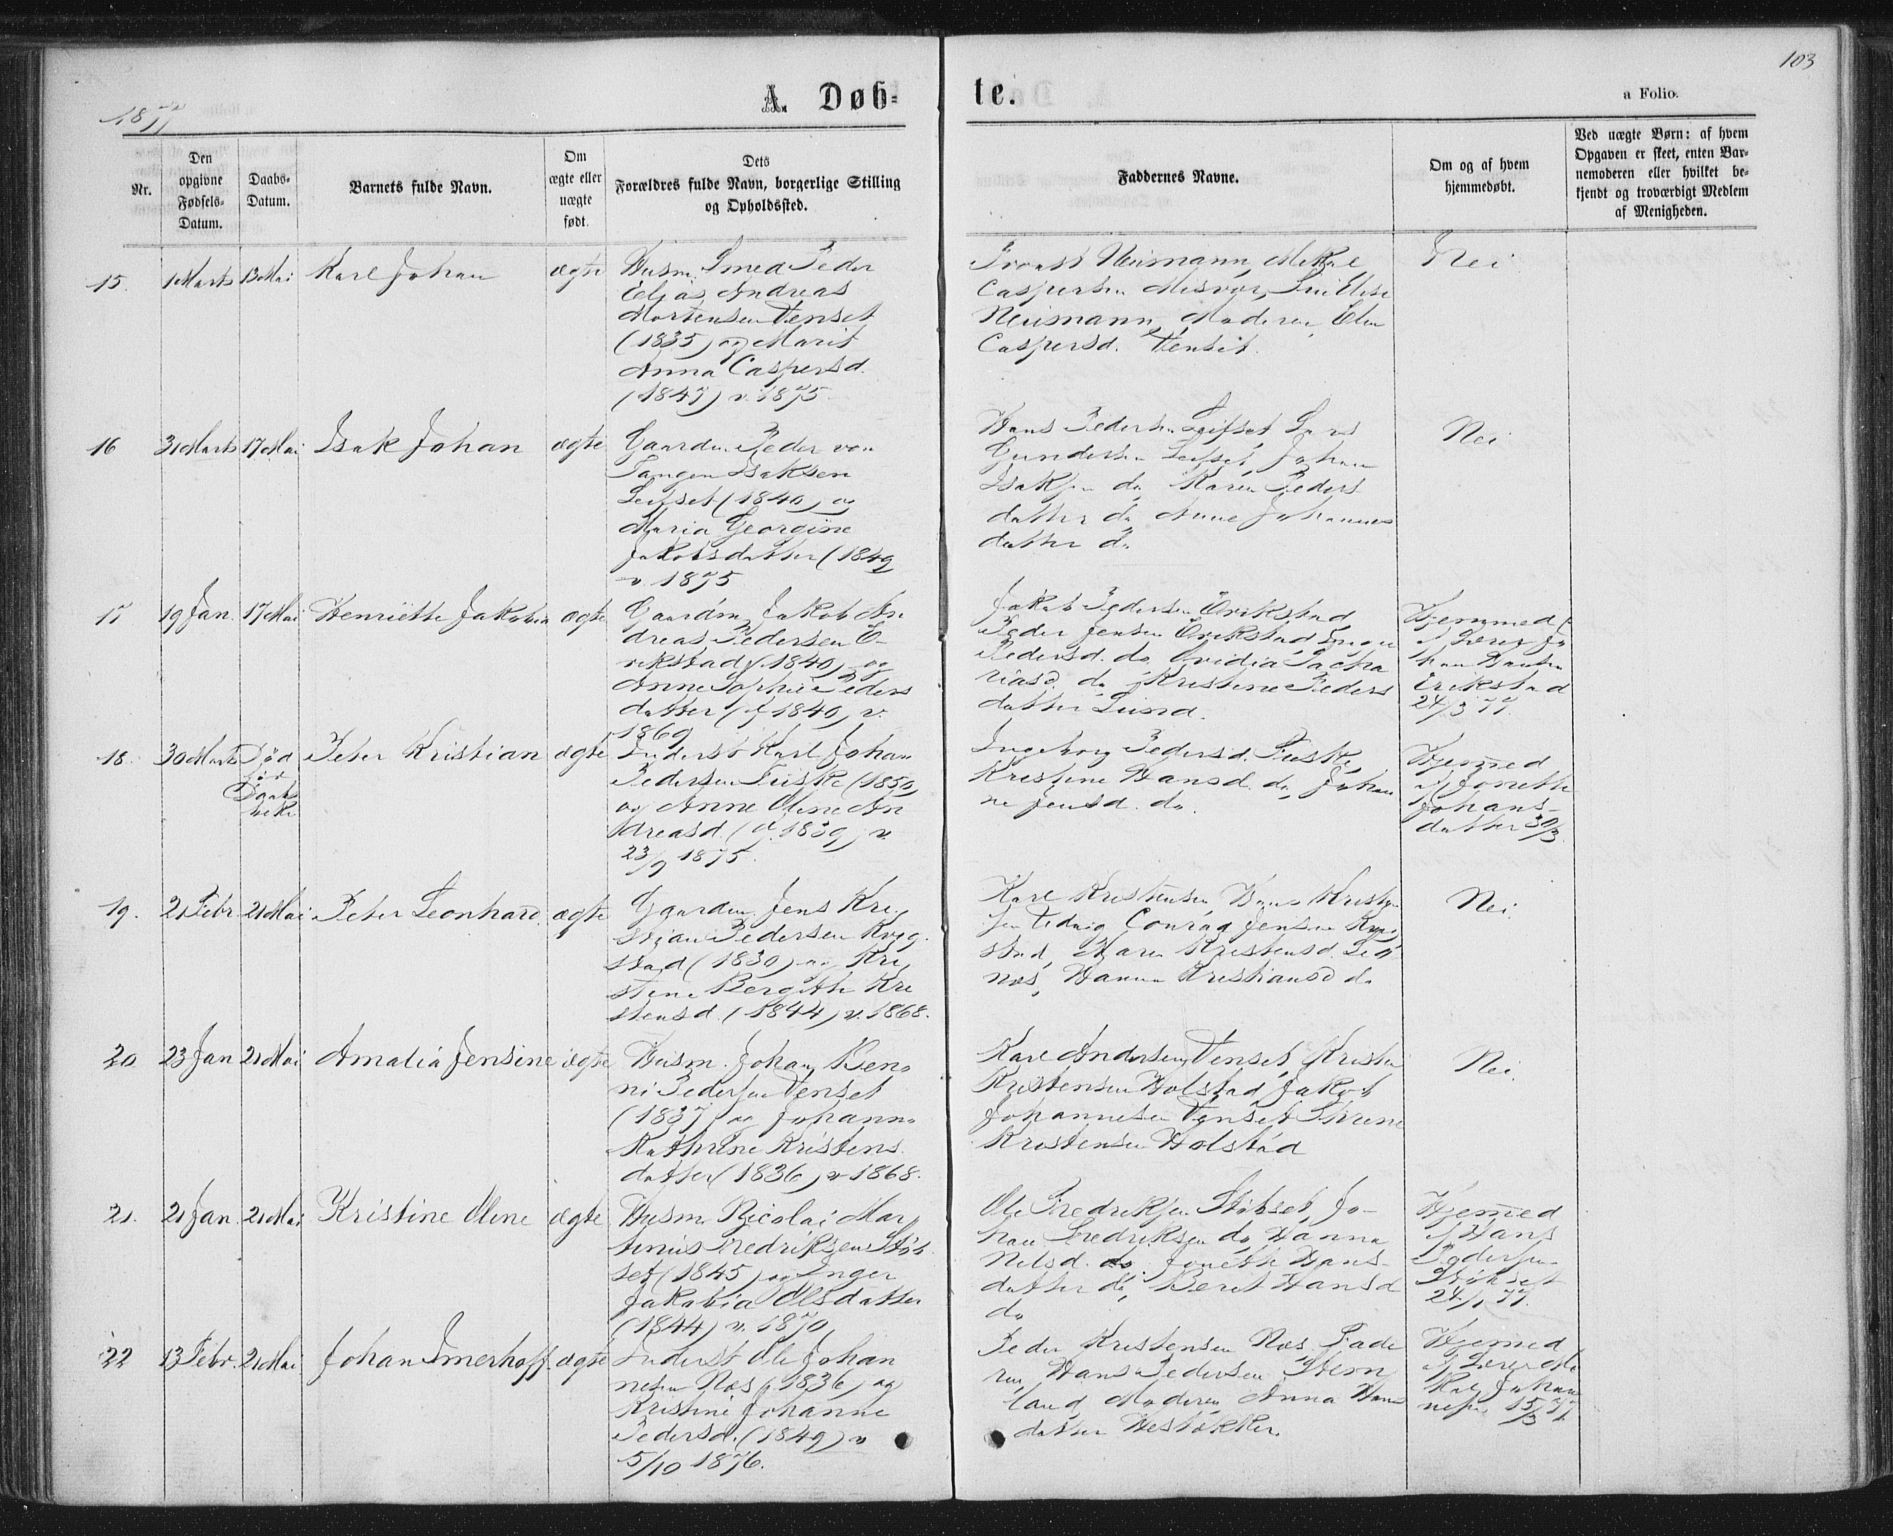 103
1877
A. Døb-
te.
a Folio.
Nr.
Den
opgivne
Fødsels-
Datum.
Daabs-
Datum.
Barnets fulde Navn.
Om
ægte eller
uægte
født.
Dets
Forældres fulde Navn, borgerlige Stilling
og Opholdssted.
Faddernes Navne.
Om og af hvem
hjemmedøbt.
Ved uægte Børn: af hvem
Opgaven er skeet, enten Bar-
nemoderen eller hvilket be-
kjendt og troværdigt Medlem
af Menigheden.
15. 1 Marts 13 Mai Karl Johan ægte
Husm. Smed Peder
Elias Andreas
Mortensen Venset
(1835) og Marit
Anna Caspersd.
(1847) v. 1875.
Neumann, Mikal
Caspersen Misvær,
Neumann, Moderen, Elen
Caspersd. Venset.
Nei
16 31 Marts 17 Mai Isak Johan ægte
Gaardm. Peder von
Tangen Isaksen
Leifset (1840) og
Maria Georgine
Jakobsdatter (1849
v. 1875
Hans Pedersen Leifset, Lars
Gundersen Leifset, Johan
Isaksen do Karen Peders
datter do Anne Johannes
datter do
Nei
17 19 Jan. 17 Mai Henriette Jakobin ægte
Gaardm. Jakob An
dreas Pedersen E-
rikstad (1840) og
Anne Sophie Peders
datter (f 1840) v.
1869
Jakob Pedersen Erikstad
Peder Jensen Erikstad,
Pedersd. do Ovidia Zacha
riasd. do, Kristine Peders
datter Lund.
Hjemmed
af Lærer Jo
han
Erikstad
24/3 77.
18. 30 Marts Død
før
Daabs
Peter Kristian ægte
Inderst Karl Johan
Pedersen Fuske (1850)
og Anne Oline An
dreasd. (f. 1839) v.
23/9 1875.
Ingeborg Pedersd. Fuske,
Kristine Hansd. do, Johan
ne Jensd. do.
Hjemmed
af Jonette
Johans-
datter 30/3
19. 21 Febr 21 Mai Peter Leonhard. ægte
Gaardm. Jens Kri
stian Pedersen Kvig
stad (1830) og Kri
stine Bergithe Kri
stensd. (1844) v. 1868.
Karl Kristensen Hans Kristen
sen Conrad Jensen Kvig
stad, Karen Kristensd. Leg
næs, Hanna Kristiansd do
Nei.
20 23 Jan 21 Mai Amalia Jensine ægte
Husm. Johan Beno
ni Pedersen Venset
(1837) og Johanna
Kathrine Kristens
datter (1836) v. 1868.
Karl Andersen Venset, Kristen
Kristensen Holstad Jakob
Johannesen Venset
Kristensen Holstad
Nei.
21. 21 Jan. 21 Mai Kristine Oline ægte
Husm. Nicolai Mar
tinus Fredriksen Støv
set (1845) og Inger
Jakobia Olsdatter
(1844) v. 1870,
Ole Fredriksen Støvset, Jo-
han Fredriksen do, Hanna
Nilsd. do. Jonette Hans-
datter do, Beret Hansd
do
Hjemmed
af Hans
Pedersen
Støvset
24/1 77.
22 13 Febr. 21 Mai Johan Imerhoff ægte
Inderst Ole Johan
nesen Næs (1836) og
Kristine Johanne
Pedersd. (1849) v
5/10 1876.
Peder Kristensen Næs Fade
ren, Hans Pedersen
land, Moderen, Anna Hans
datter
Hjemmed
af Lærer Mi
kal Johan
nesen 15/3 77.